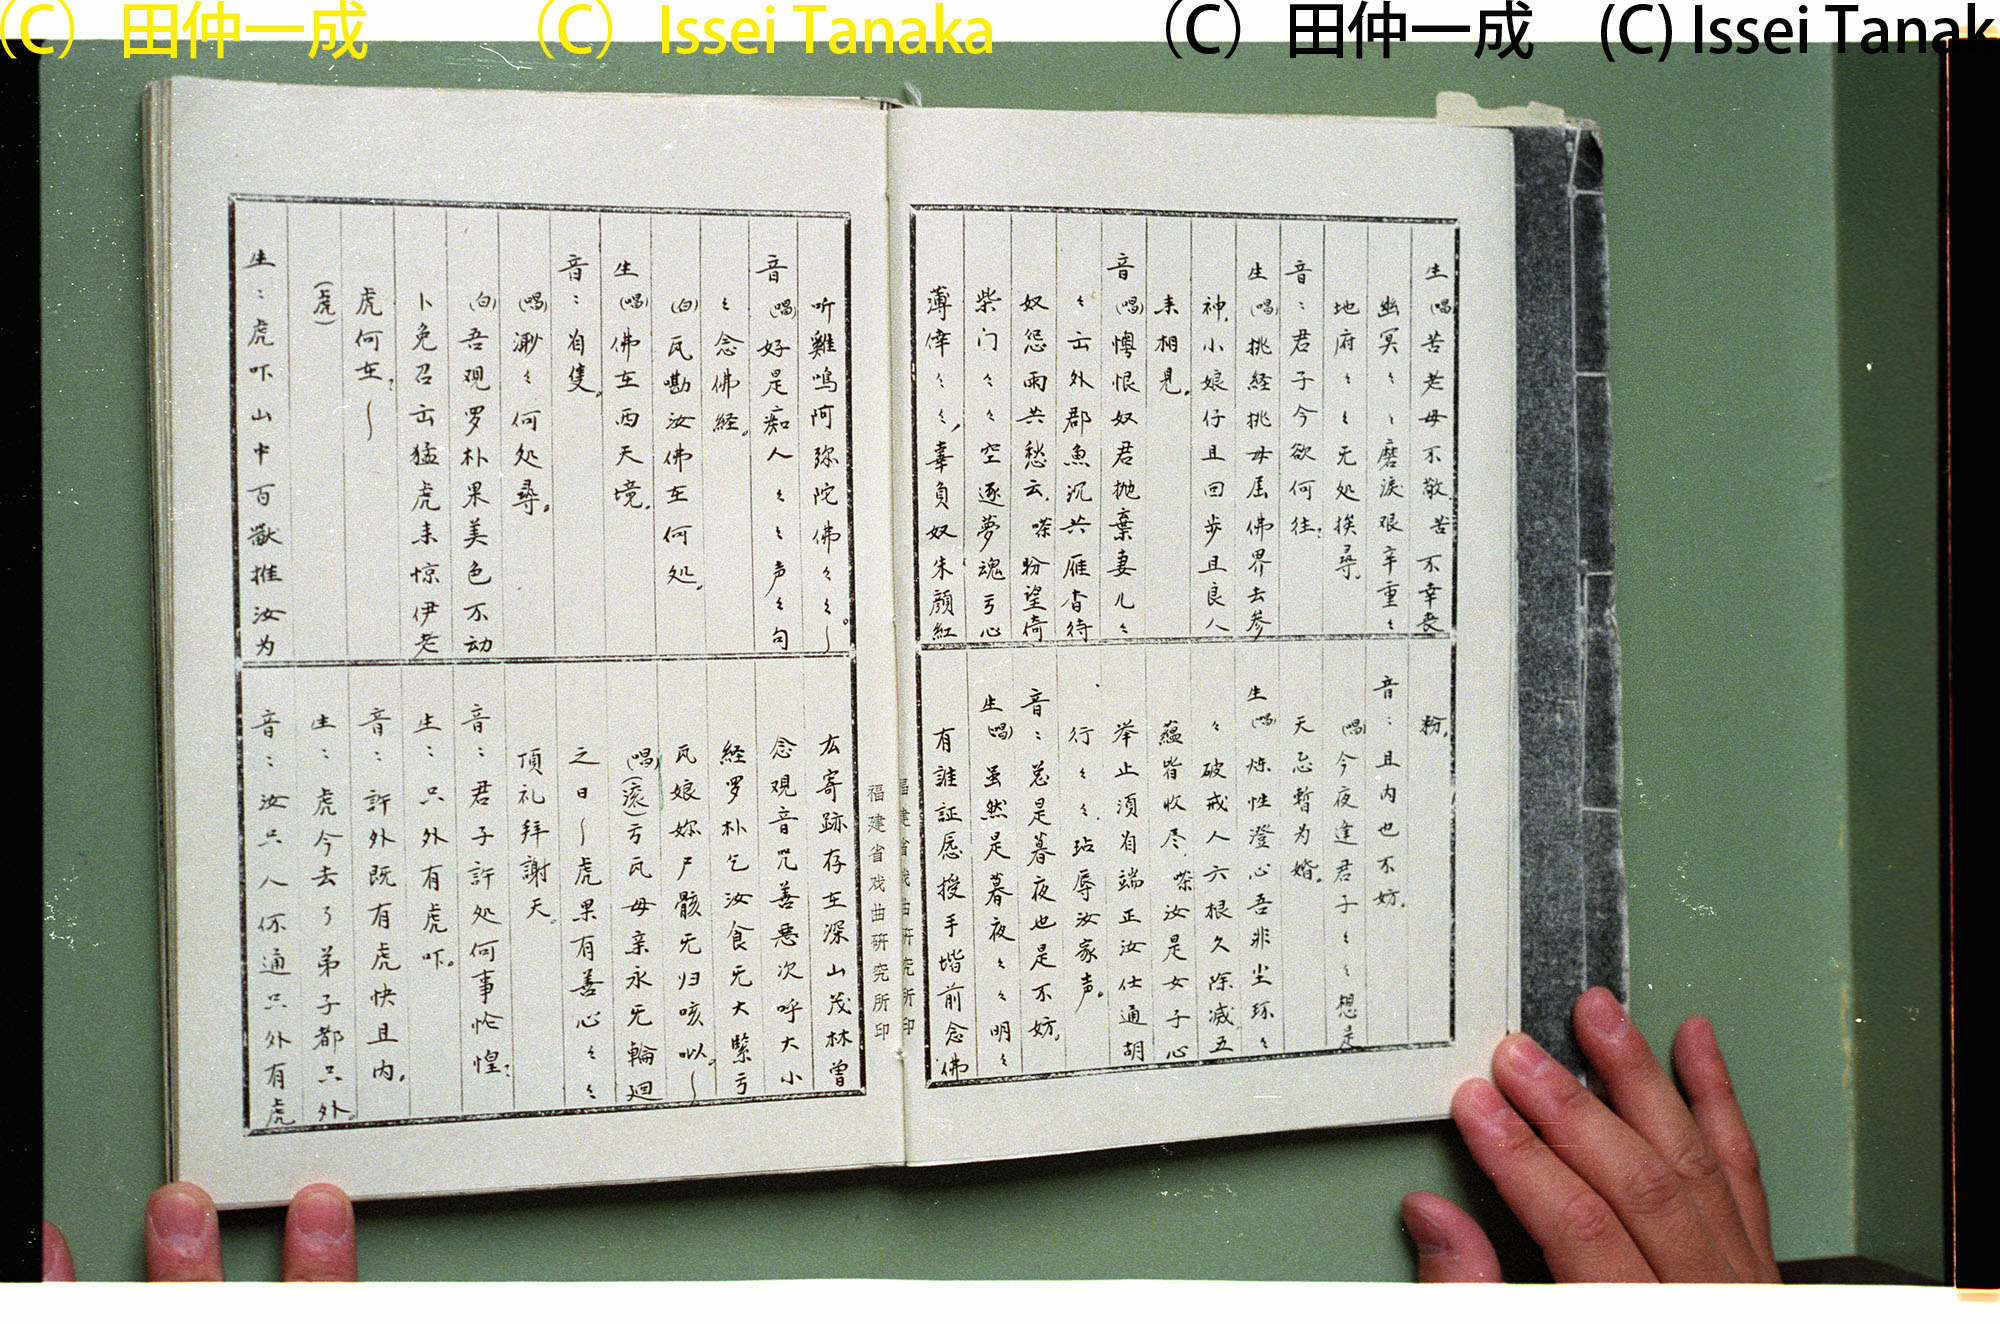 (C) 田仲一成 (C) Issei Tanaka (C) 田仲一成 (C) Issei Tanak
生(唱)苦老母不敬.苦不幸丧
幽冥々々磨淚艰辛重々
地府々々无处挨尋.
音：君子今欲何往：
生(唱)挑経挑母屈佛界去参
神.小娘仔且回步且良人
来相見.
音(唱)懊恨奴君抛棄妻儿々
々云外郡魚沉共雁杳待
奴怨雨共愁云.嗏盼望倚
柴门々々空逐夢魂亏心
薄倖々々,辜負奴朱顔紅
粉.
音：且内也不妨.
(唱)今夜逢君子々々想是
天忌暫为婚.
生(唱)炼性澄心吾非尘琢々
々破戒人六根久除滅五
蘊皆收尽.嗏汝是女子心
举止須自端正汝仕通胡
行々々玷辱汝家声。
音：总是暮夜也是不妨.
生(唱)虽然是暮夜々々明々
有誰証愿授手堦前念佛
听雞鳴阿弥陀佛々々。
音(唱)好是痴人々々声々句
々念佛経。
(白)瓦嘞汝佛在何处.
生(唱)佛在西天境.
音：自隻.
(唱)渺々何処尋。
(白)吾观罗朴果美色不动
卜免召出猛虎来惊伊老
虎何在.
(虎)
生：虎吓山中百獸推汝为
太寄跡存在深山茂林曽
念观音咒善悪次呼大小
経罗朴乞汝食无大緊亏
瓦娘妳尸骸无归咳吣.
(唱)(滚)亏瓦母亲永无輪迴
之日虎果有善心々々
頂礼拜謝天.
音：君子許処何事忙惶：
生：只外有虎吓。
音：許外既有虎快且内.
生：虎今去了弟子都只外.
音：汝只人你通只外有虎
福建省戏曲研究所印
福建省戏曲研究所印